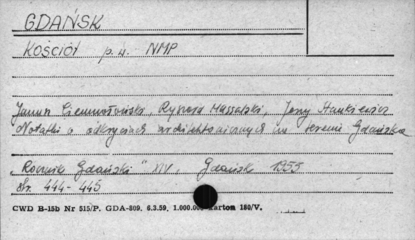 GDAŃSK
KOŚCIÓŁ p.w. NMP
Janusz Ciemnołoński, Ryszard Massalski, Jerzy Stankiewicz
Notatki o odkryciach architektonicznych na terenie Gdańska
"Rocznik Gdański" XIV, Gdańsk 1955
str. 444-445
CWD B-15b Nr 515/P. GDA-809. 6.3.59, 1.000.000 karton 180/V.